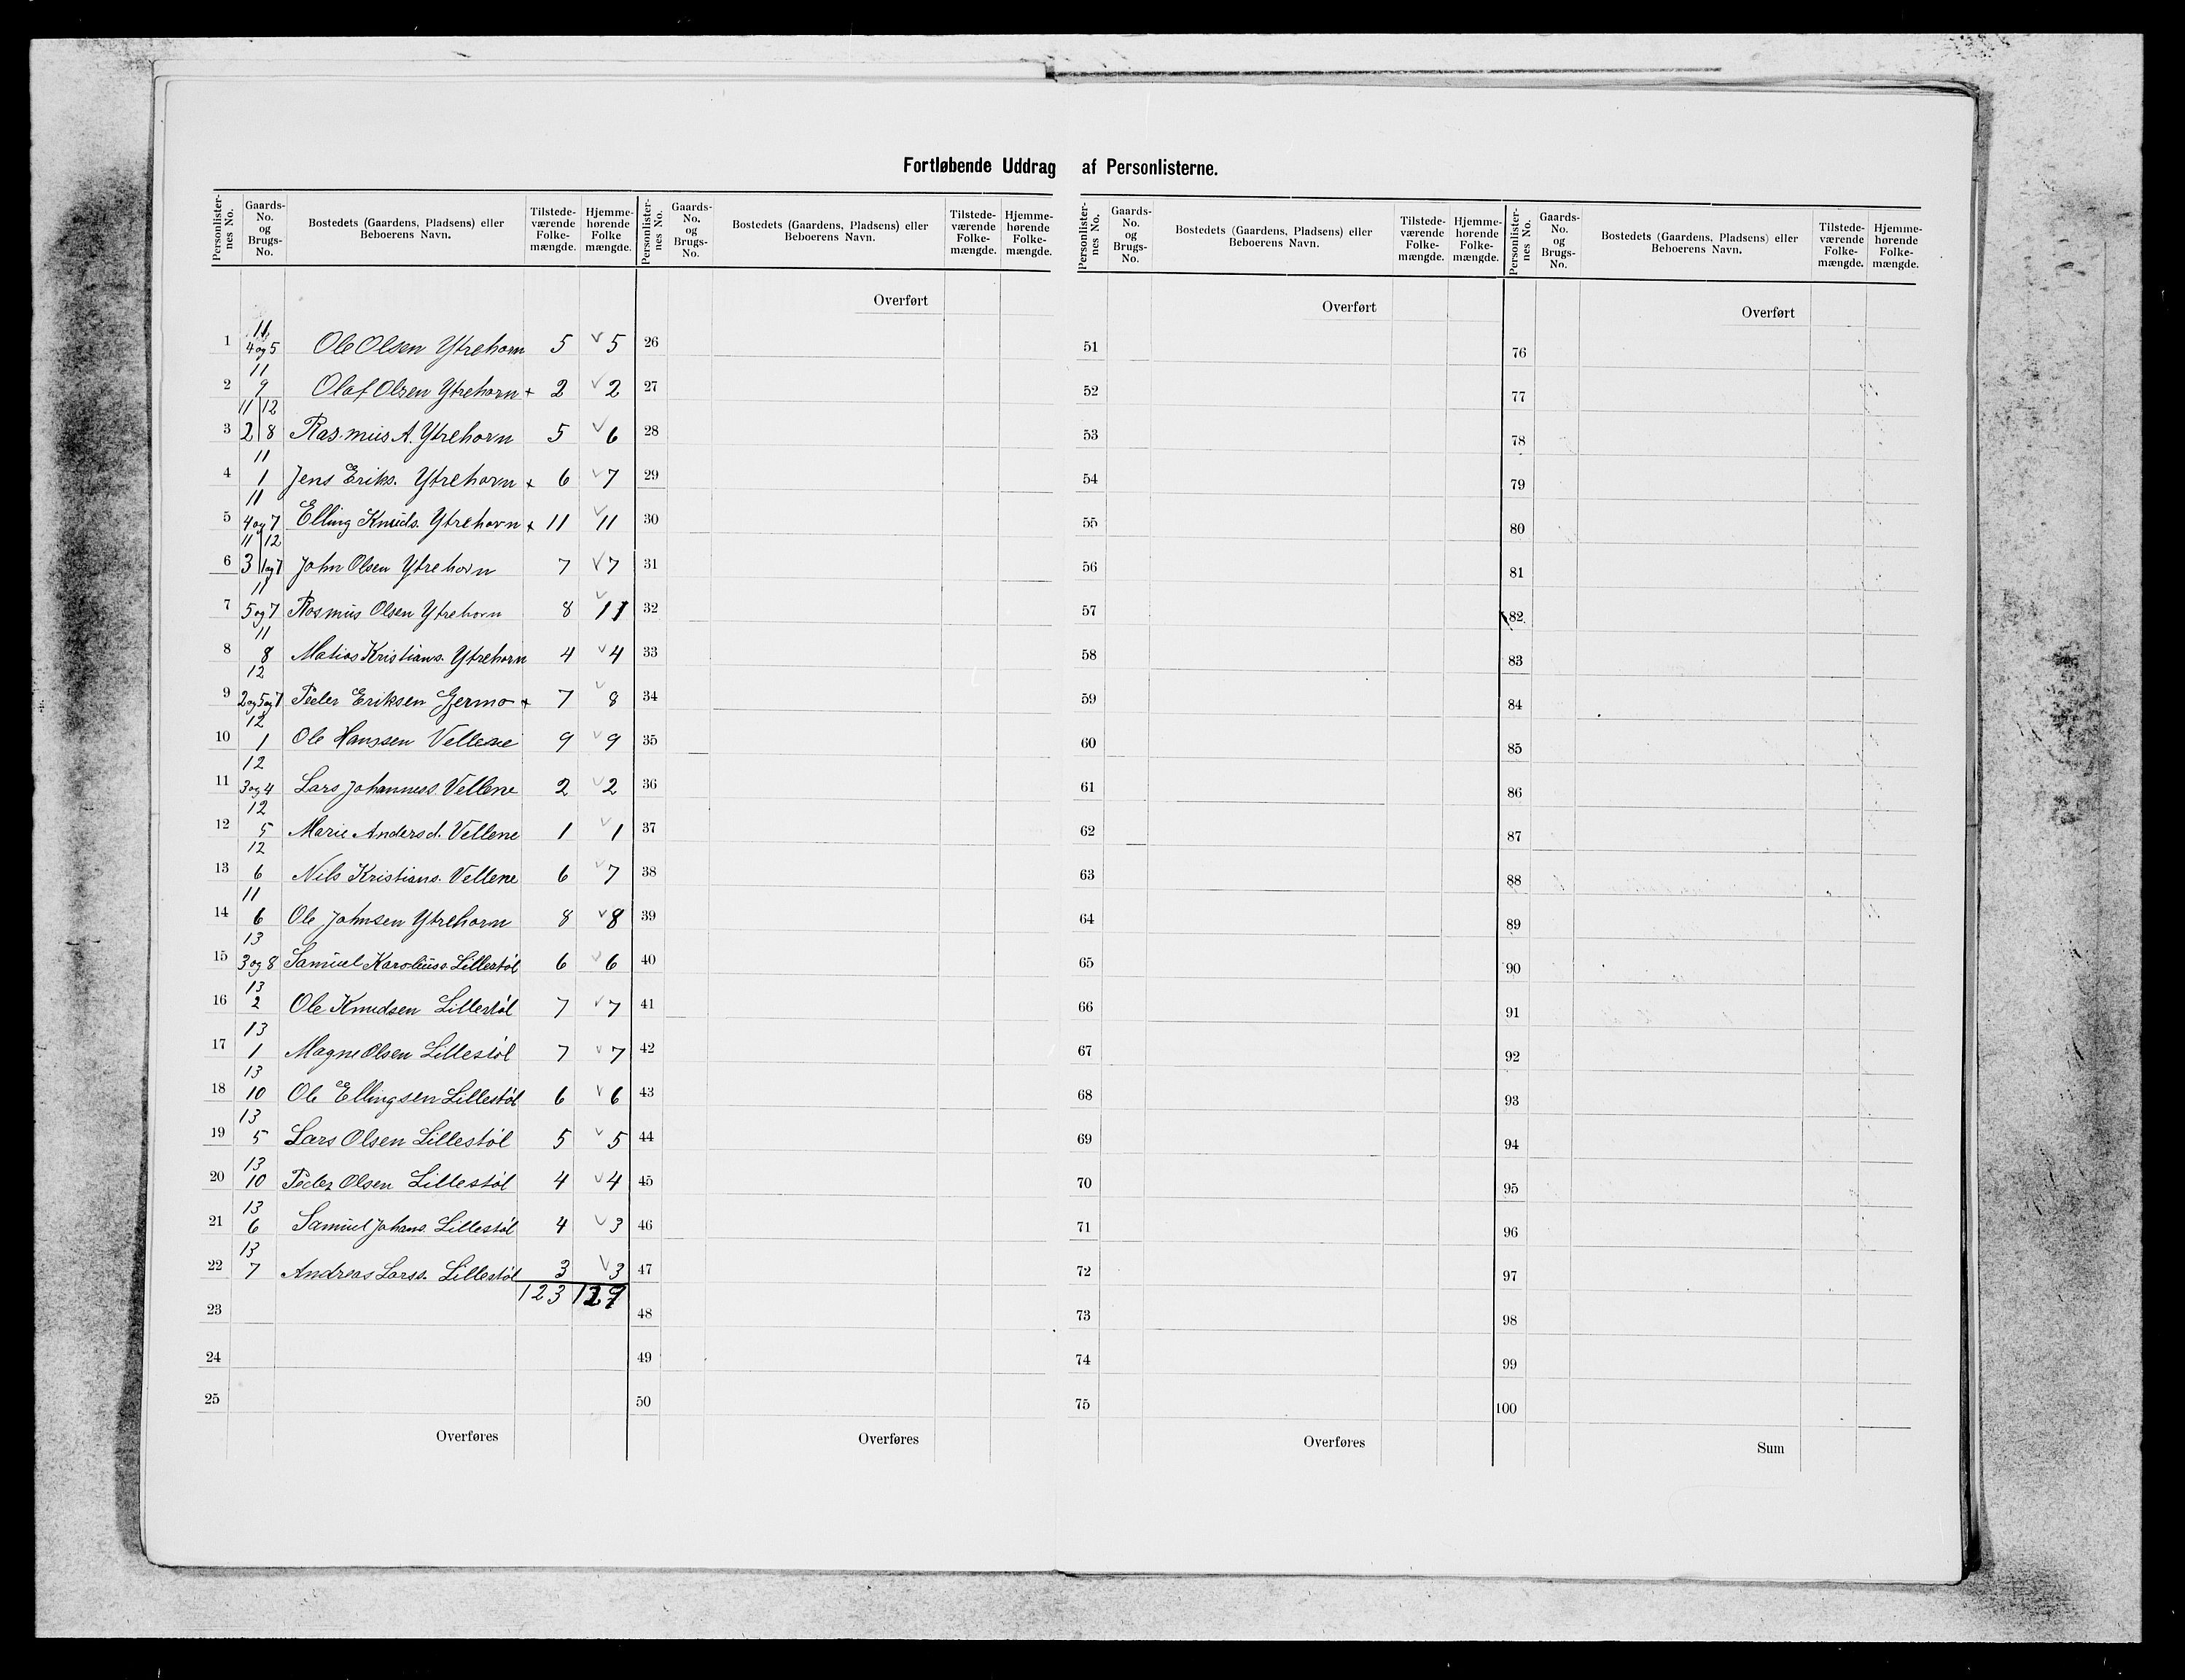 Fortløbende Uddrag af Personlisterne.
Personlister-nes No. | Gaards-No. og Brugs-No. | Bostedets (Gaardens, Pladsens) eller Beboerens Navn. | Tilstede-værende Folke-mængde. | Hjemme-hørende Folke mængde.
Personlister-nes No. | Gaards-No. og Brugs-No. | Bostedets (Gaardens, Pladsens) eller Beboerens Navn. | Tilstede-værende Folke-mængde. | Hjemme-hørende Folke-mængde.
Personlister-nes No. | Gaards-No. og Brugs-No. | Bostedets (Gaardens, Pladsens) eller Beboerens Navn. | Tilstede-værende Folke-mængde. | Hjemme-hørende Folke-mængde.
Personlister-nes No. | Gaards-No. og Brugs-No. | Bostedets (Gaardens, Pladsens) eller Beboerens Navn. | Tilstede-værende Folke-mængde. | Hjemme-hørende Folke-mængde.
Overført Overført Overført
11
1 4 og 5 Ole Olsen Ytrehorn 5 v 5 26 51 76
11
2 9 Olaf Olsen Ytrehorn + 2 v 2 27 52 77
11 | 12
3 2 | 8 Rasmus A. Ytrehorn 5 v 6 28 53 78
11
4 1 Jens Eriks. Ytrehorn + 6 v 7 29 54 79
11
5 4 og 7 Elling Knuds. Ytrehorn + 11 v 11 30 55 80
11 | 12
6 3 | 1 og 7 John Olsen Ytrehorn 7 v 7 31 56 81
11
7 5 og 7 Rasmus Olsen Ytrehorn 8 v 11 32 57 82
11
8 8 Matias Kristians. Ytrehorn 4 v 4 33 58 83
12
9 2 og 5 og 7 Peder Eriksen Gjermo + 7 v 8 34 59 84
12
10 1 Ole Hanssen Vellene 9 v 9 35 60 85
12
11 3 og 4 Lars Johanness. Vellene 2 v 2 36 61 86
12
12 5 Marie Andersd. Vellene 1 v 1 37 62 87
12
13 6 Nils Kristians. Vellene 6 v 7 38 63 88
11
14 6 Ole Johnsen Ytrehorn 8 v 8 39 64 89
13
15 3 og 8 Samuel Karoliuss. Lillestöl 6 v 6 40 65 90
13
16 2 Ole Knudsen Lillestöl 7 v 7 41 66 91
13
17 1 Magne Olsen Lillestöl 7 v 7 42 67 92
13
18 10 Ole Ellingsen Lillestöl 6 v 6 43 68 93
13
19 5 Lars Olsen Lillestöl 5 v 5 44 69 94
13
20 10 Peder Olsen Lillestöl 4 v 4 45 70 95
13
21 6 Samuel Johans. Lillestöl 4 v 3 46 71 96
13
22 7 Andreas Larss. Lillestöl 3 v 3 47 72 97
123
23 48 73 98
24 49 74 99
25 50 75 100
Overføres Overføres Overføres Sum